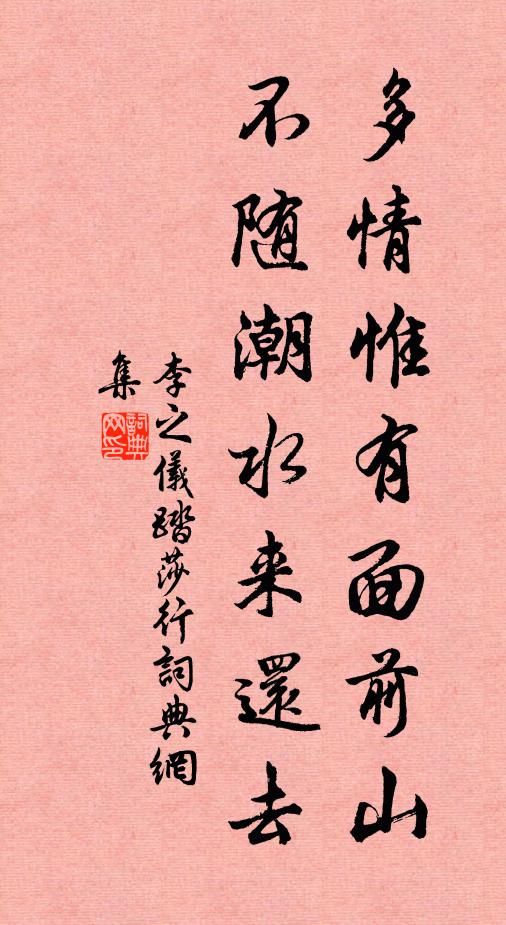 多情惟有面前山
不随潮水来還去
李之儀踏莎行詞典網
集
詞典
网印